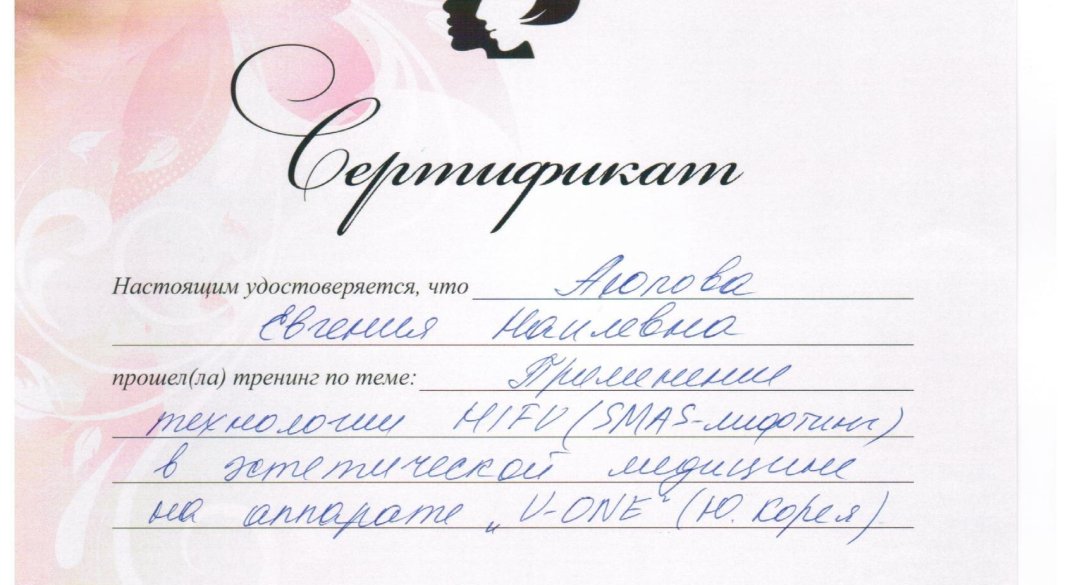 Сертификат
Настоящим удостоверяется, что Аюпова
Евгения Наилевна
прошел(ла) тренинг по теме: Применение
технологии HIFU (SMAS-лифтинг)
в эстетической медицине
на аппарате „U-ONE“ (Ю. Корея)